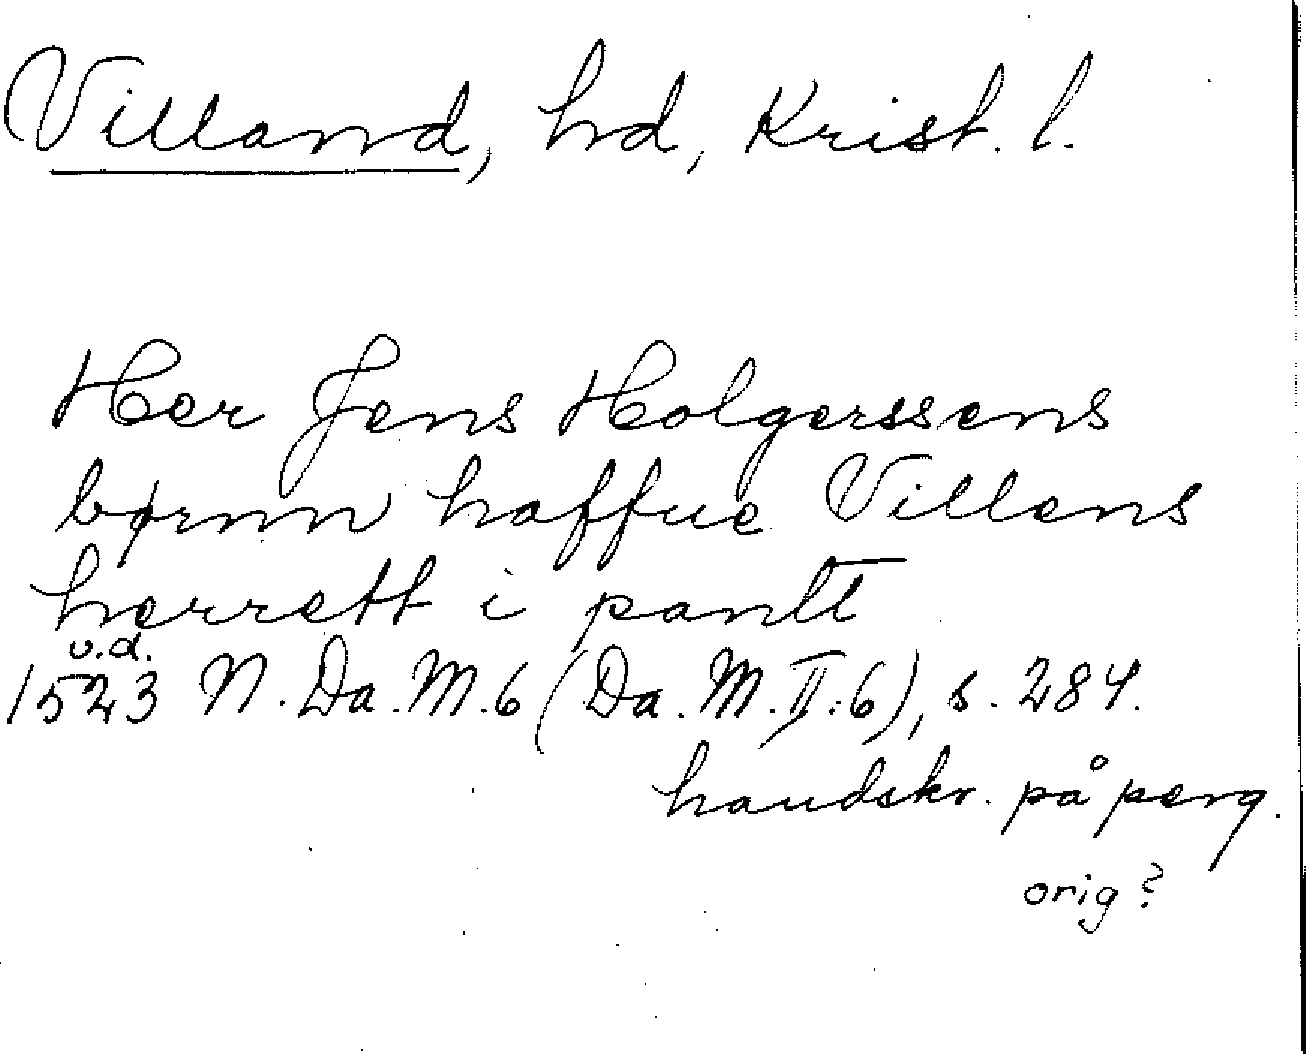 Villand, hd, Krist. l.
Her Jens Holgerssens
børnn haffue Villens
herrett i pantt
u.d.
1523 N. Da. M. 6 (Da. M. II:6), s. 284.
handskr. på perg.
orig?